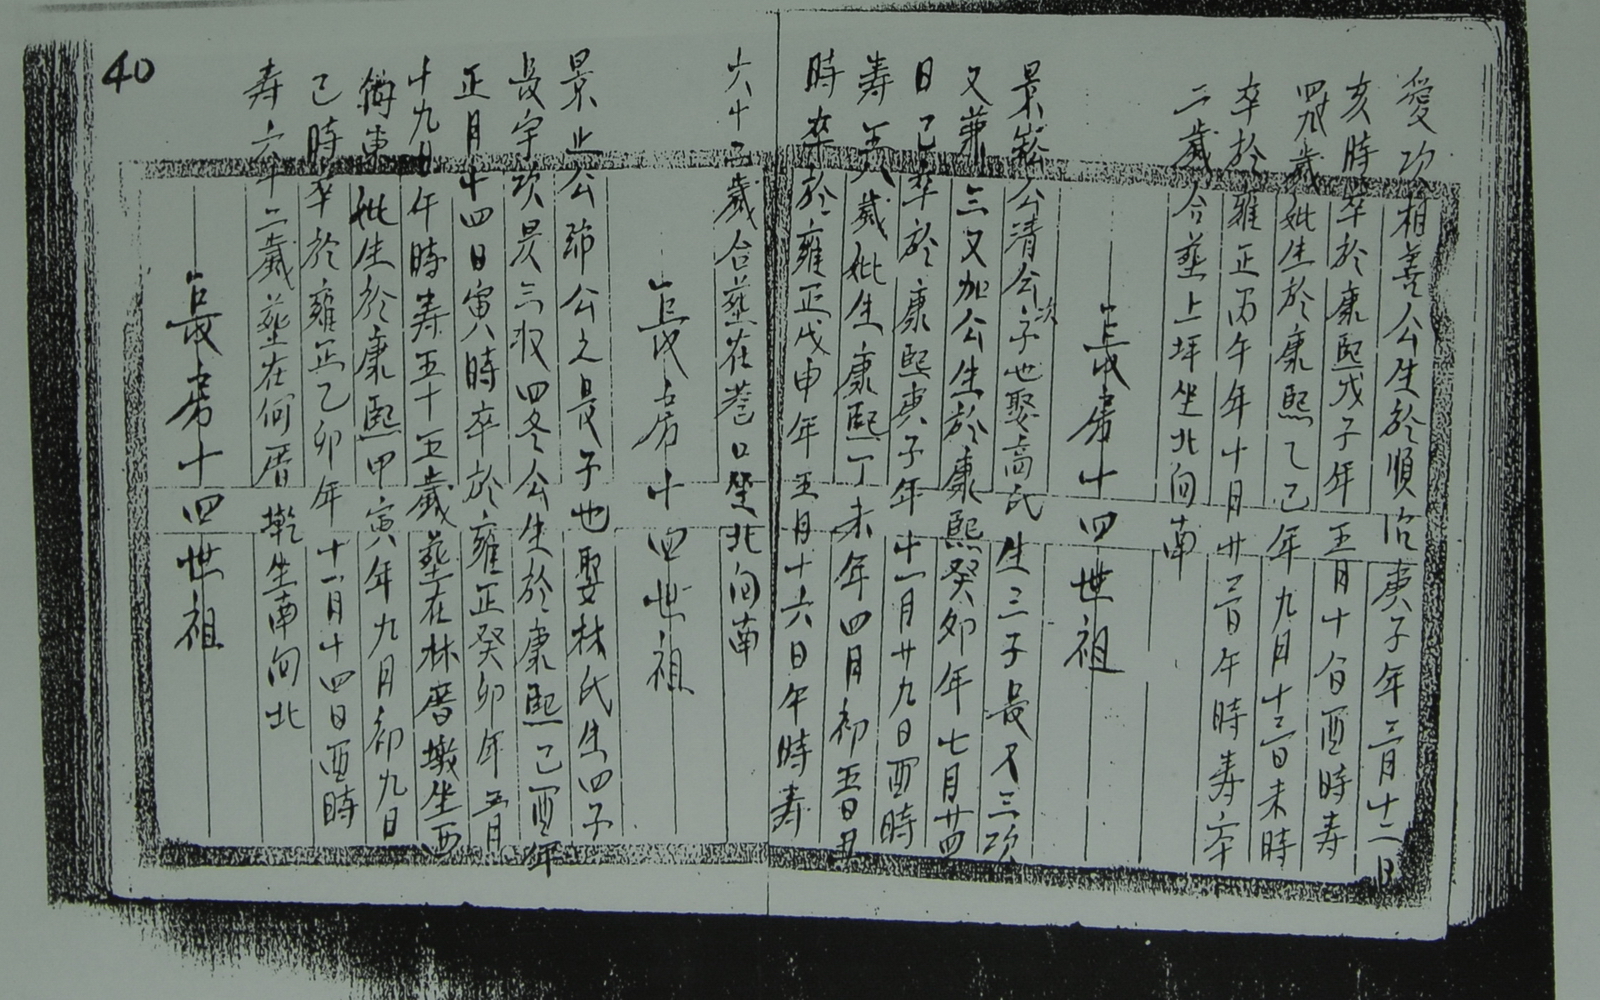 愛次相善公生於順治庚子年三月十二日
亥時卒於康熙戊子年五月十八日酉時壽
四九歲妣生於康熙乙巳年九月十三日未時
卒於雍正丙午年十月廿三日午時壽六十
二歲合葬上坪坐北向南
長房十四世祖
景崧公清公次子也娶高氏生三子長又三次
又兼三又加公生於康熙癸卯年七月廿四
日巳卒於康熙庚子年十一月廿九日酉時
壽五八歲妣生康熙丁未年四月初五日丑
時卒於雍正戊申年五月十六日午時壽
六十二歲合葬在巷口坐北向南
長房十四世祖
景止公 公之長子也娶林氏生四子
長宇次昊三 四冬公生於康熙己酉年
正月十四日寅時卒於雍正癸卯年五月
十九日午時壽五十五歲葬在林厝墩坐西
向東妣生於康熙甲寅年九月初九日
己時卒於雍正乙卯年十一月十四日酉時
壽六十二歲葬在何厝 坐南向北
長房十四世祖
40